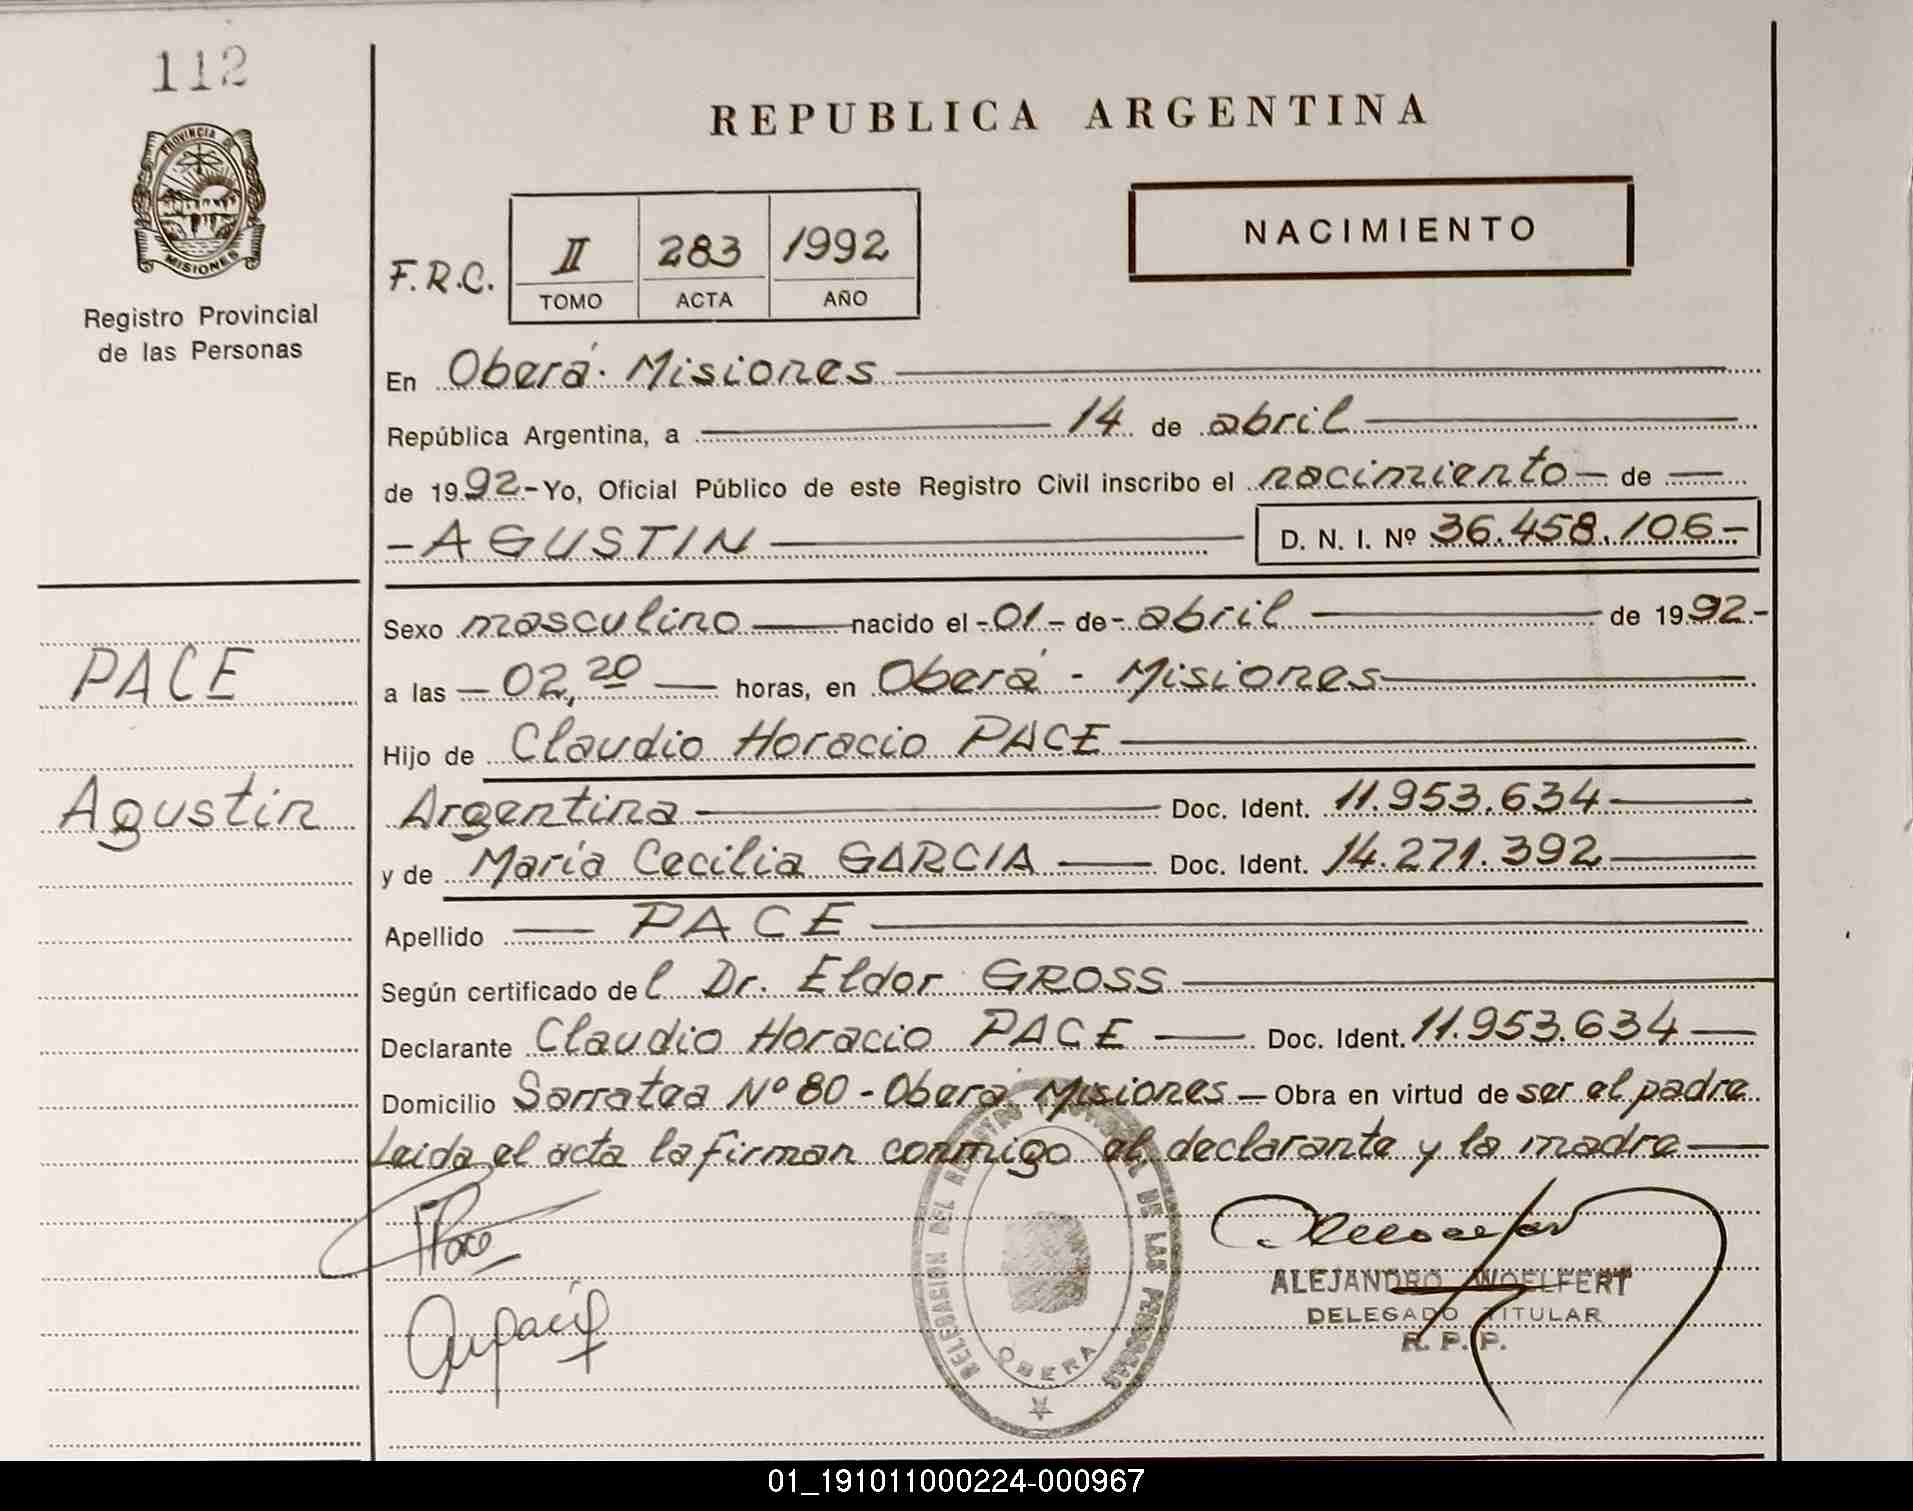 112
PROVINCIA DE
MISIONES
Registro Provincial
de las Personas
REPUBLICA ARGENTINA
NACIMIENTO
F.R.C. II 283 1992
TOMO ACTA AÑO
En Oberá. Misiones
República Argentina, a 14 de abril
de 1992-Yo, Oficial Público de este Registro Civil inscribo el nacimiento - de
- AGUSTIN D. N. I. Nº 36.458.106-
Sexo masculino nacido el -01- de- abril de 1992.-
PACE
a las - 02,20 horas, en Oberá - Misiones
Hijo de Claudio Horacio PACE
Agustin
Argentina Doc. Ident. 11.953.634
y de María Cecilia GARCIA Doc. Ident. 14.271.392
Apellido PACE
Según certificado del Dr. Eldor GROSS
Declarante Claudio Horacio PACE Doc. Ident. 11.953.634
Domicilio Sarratea Nº 80 - Oberá Misiones - Obra en virtud de ser el padre
Leida el acta la firman conmigo el declarante y la madre
DELEGACION DEL REGISTRO PROVINCIAL DE LAS PERSONAS
OBERA
ALEJANDRO WOELFERT
DELEGADO TITULAR
R. P. P.
01_191011000224-000967